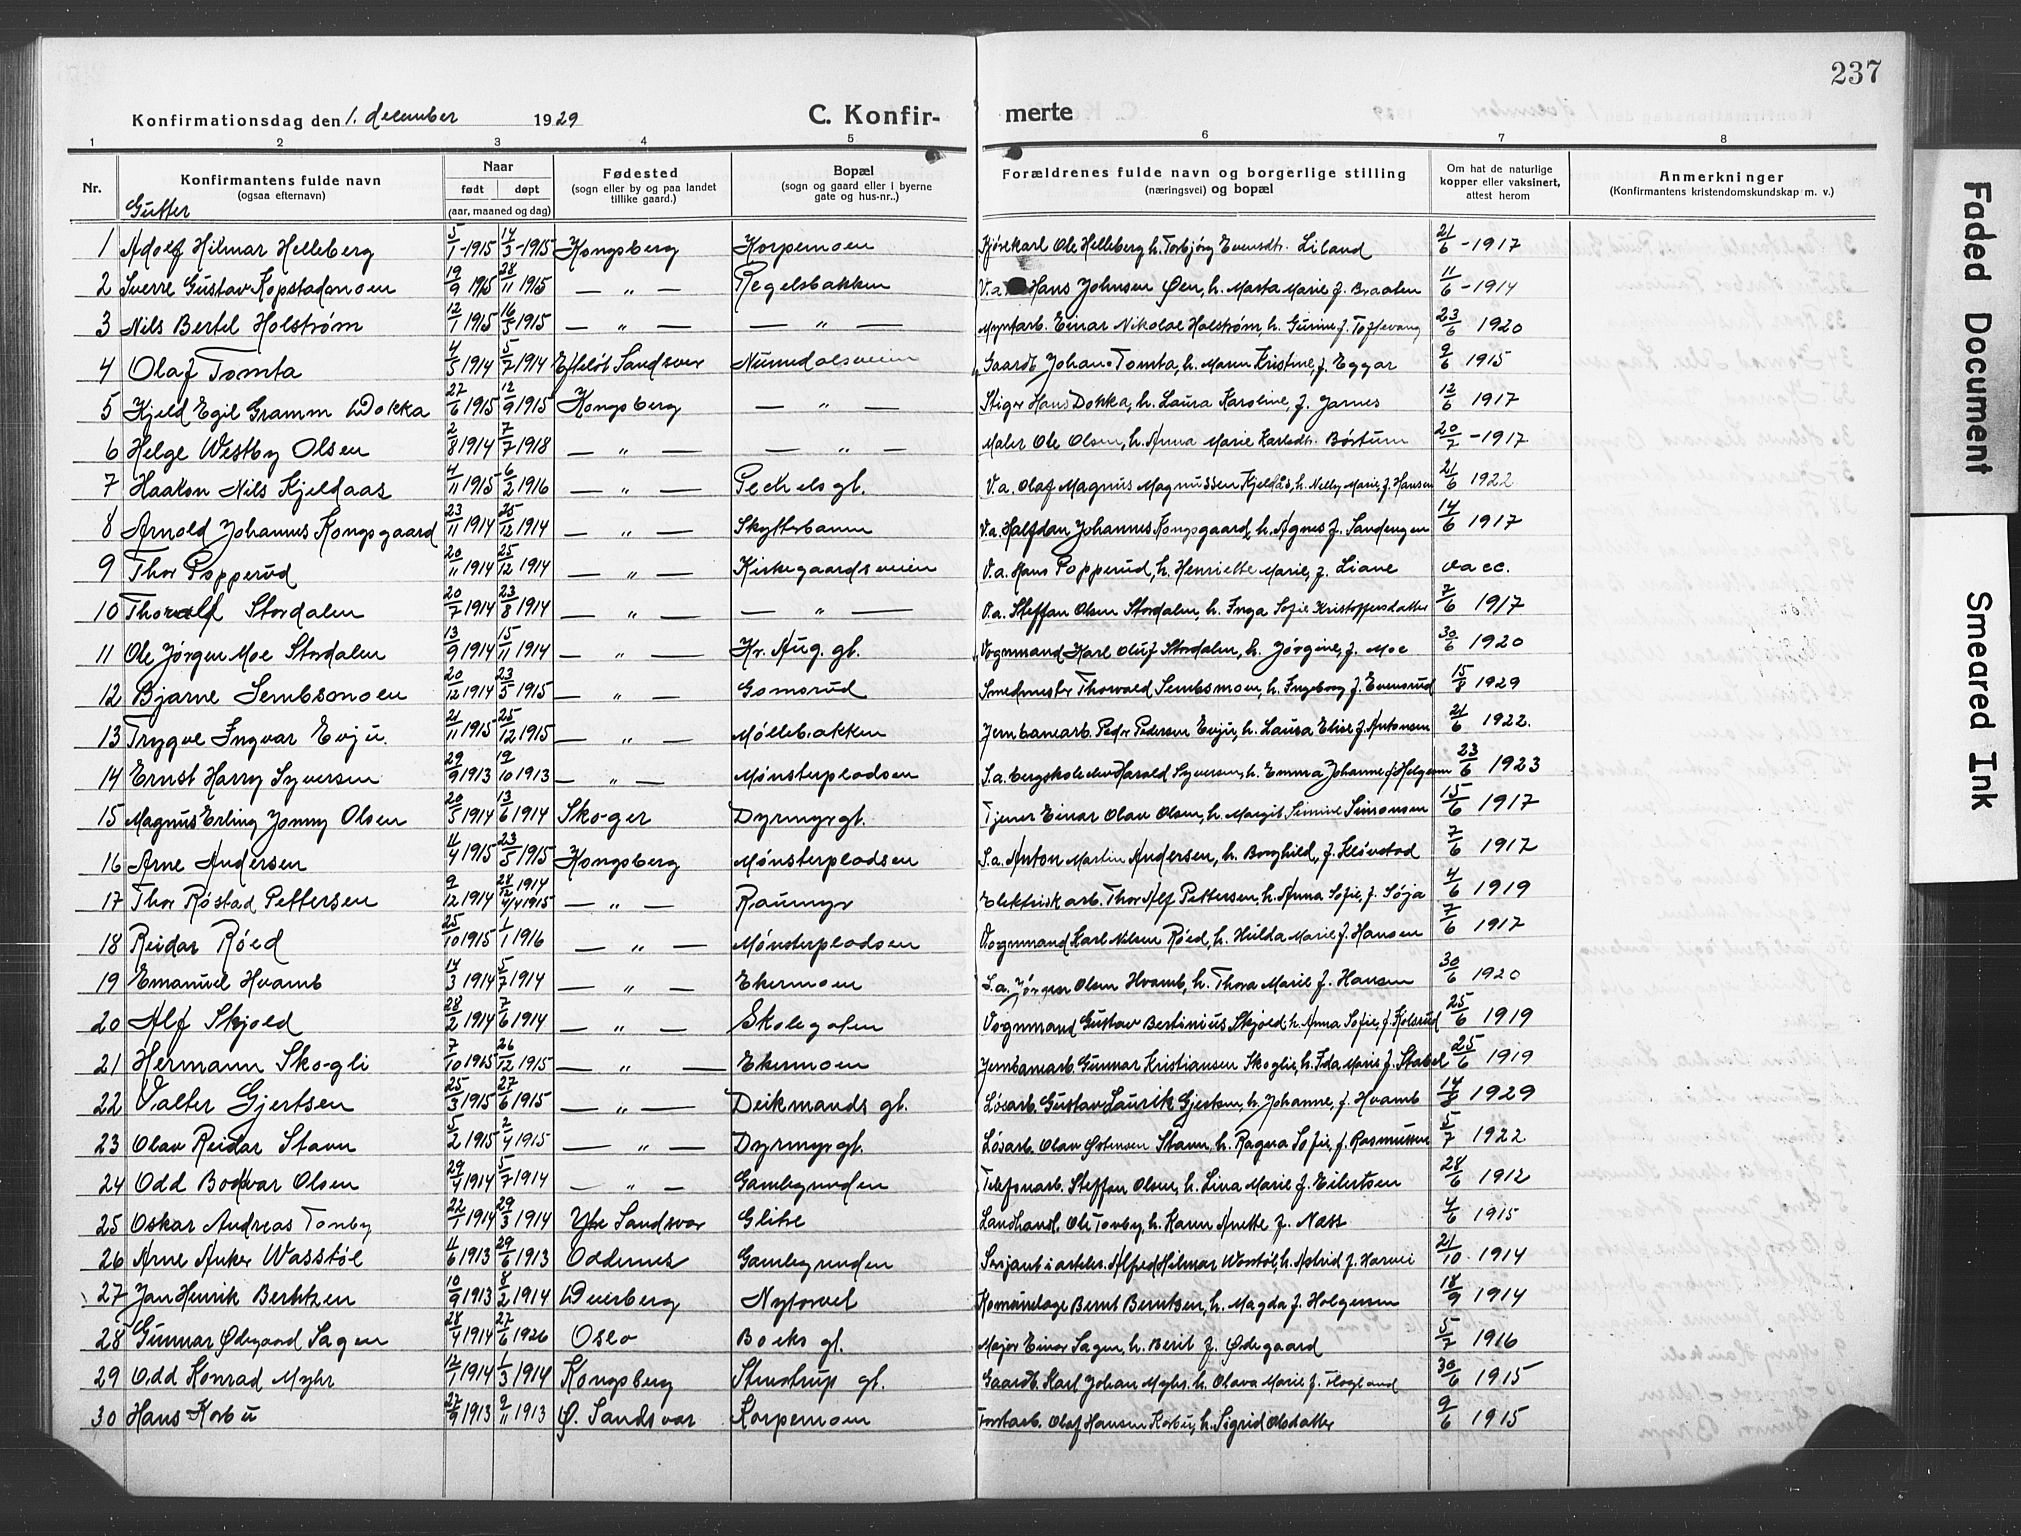 237
Konfirmationsdag den 1. december 1929 C. Konfir- merte
1 2 3 4 5 6 7 8
Nr. Konfirmantens fulde navn (ogsaa efternavn) Naar født døpt (aar, maaned og dag) Fødested (sogn eller by og paa landet tillike gaard.) Bopæl (sogn og gaard eller i byerne gate og hus-nr..) Forældrenes fulde navn og borgerlige stilling (næringsvei) og bopæl Om hat de naturlige kopper eller vaksinert, attest herom Anmerkninger (Konfirmantens kristendomskundskap m. v.)
Gutter
1 Adolf Hilmar Helleberg 5/1-1915 14/3-1915 Kongsberg Korpemoen Kjørekarl Ole Helleberg h. Torbjørg Evensdtr. Liland 21/6-1917
2 Sverre Gustav Kopstadmoen 19/9 1915 28/11 1915 — " — Regelsbakken V.a. Hans Johnsen Øen, h. Marta Marie f. Braalen 11/6-1914
3 Nils Bertel Holstrøm 12/1 1915 16/5 1915 — " — — " — Myntarb. Einar Nikolae Holstrøm h. Gurine f. Toftevang 23/6 1920
4 Olaf Tomta 4/5 1914 5/7 1914 Efteløt Sandsvær Numedalsveien Gaardb. Johan Tomta, h. Maren Kristine, f. Eggar 9/6 1915
5 Kjeld Egil Gramm Dokka 27/6 1915 12/9 1915 Kongsberg — " — Stiger Hans Dokka, h. Laura Karoline, f. Jarnes 12/6 1917
6 Helge Westby Olsen 2/8 1914 7/7 1918 — " — — " — Maler Ole Olsen, h. Anna Marie Karlsdtr. Børtum 20/7-1917
7 Haakon Nils Kjeldaas 4/11 1915 6/2 1916 — " — Peckels gt. V.a. Olaf Magnus Magnussen Kjeldås, h. Nelly Marie, f. Hansen 21/6 1922
8 Arnold Johannes Kongsgaard 23/11 1914 25/12 1914 — " — Skytterbanen V.a. Halfdan Johannes Kongsgaard, h. Agnes f. Sandengen 14/6 1917
9 Thor Popperud 20/11 1914 25/12 1914 — " — Kirkegaardsveien V.a. Hans Popperud, h. Henriette Marie, f. Liane vacc.
10 Thoralf Stordalen 20/7 1914 23/8 1914 — " — — " — V.a. Steffan Olsen Stordalen, h. Inga Sofie Kristoffersdatter 7/6 1917
11 Ole Jørgen Moe Stordalen 13/9 1914 15/11 1914 — " — Kr. Aug. gt. Vognmand Karl Oluf Stordalen, h. Jørgine, f. Moe 30/6 1920
12 Bjarne Sembsmoen 20/12 1914 23/5 1915 — " — Gomsrud Smedmester Thorvald Sembsmoen, h. Ingeborg f. Evensrud 15/8 1929
13 Trygve Ingvar Evju. 21/11 1915 25/12 1915 — " — Møllebakken Jernbanearb. Peder Pedersen Evju, h. Laura Elise f. Antonsen 21/6 1922.
14 Ernst Harry Syversen 29/9 1913 19/10 1913 — " — Mønsterplodsen S.a. bergskoleelev Harald Syversen, h. Emma Johanne f. Helgesen 23/6 1923
15 Magnus Erling Jonny Olsen 20/5 1914 13/6 1914 Skoger Dyrmyrgt. Tjener Einar Olav Olsen, h. Margit Simine Simonsen 15/6 1917
16 Arne Andersen 11/4 1915 23/5 1915 Kongsberg Mønsterplodsen S.a. Anton Martin Andersen, h. Borghild, f. Kløvstad 7/6 1917
17 Thor Røstad Pettersen 9/12 1914 28/12 1914 4/4 1915 — " — Raumyr Elektrisk arb. Thor Alf Pettersen, h. Anna Sofie, f. Søja 4/6 1919
18 Reidar Røed 25/10 1915 1/1 1916 — " — Mønsterplodsen Vognmand Karl Nilsen Røed, h. Hulda Marie f. Hansen 7/6 1917
19 Emanuel Hvamb 14/3 1914 5/7 1914 — " — Ekermoen S.a. Jørgen Olsen Hvamb, h. Thora Marie f. Hansen 30/6 1920
20 Alf Skjold 28/2 1914 7/6 1914 — " — Skolegaten Vognmand Gustav Bertinius Skjold, h. Anna Sofie, f. Kolsrud 25/6 1919
21 Hermann Skogli 7/10 1915 26/12 1915 — " — Ekermoen Jernbanearb. Gunnar Kristiansen Skoglie, h. Ida Marie f. Stabel 25/6 1919
22 Valter Gjertsen 25/3 1915 27/6 1915 — " — Deikmands gt. Løsarb. Gustav Laurik Gjertsen, h. Johanne, f. Hvamb 14/8 1929
23 Olav Reidar Stavn 5/2 1915 2/4 1915 — " — Dyrmyrgt. Løsarb. Olav Østensen Stavn, h. Ragna Sofie, f. Rasmussen 5/7 1922
24 Odd Bodvar Olsen 29/4 1914 5/7 1914 — " — Gamlegrunden Telefonarb. Steffen Olsen, h. Lina Marie f. Eilertsen 28/6 1912
25 Oskar Andreas Tonby 22/1 1914 29/3 1914 Ytre Sandsvær Glitre Landhandl. Ole Tonby, h. Karen Anette f. Næss 4/6 1915
26 Arne Anker Wasstøl 11/6 1913 29/6 1913 Oddernes Gamlegrunden Serjant i artelr. Alfred Hilmar Wasstøl, h. Astrid f. Harvei 21/10 1914
27 Jan Henrik Berntzen 10/9 1913 8/2 1914 Dverberg Nytorvet Bernt Berntsen, h. Magda f. Holgersen 18/9 1914
28 Gunnar Ødegaard Sagen 28/4 1914 27/6 1926 Oslo Boeks gt. Major Einar Sagen, h. Berit f. Ødegaard 5/7 1916
29 Odd Konrad Myhr 12/1 1914 1/3 1914 Kongsberg Stenstrup gt. Gaardb. Karl Johan Myhr. h. Olava Marie f. Flogland 30/6 1915
30 Hans Korbu 27/9 1913 9/11 1913 Ø. Sandsvær Korpemoen Forstarb. Olaf Hansen Korbu, h. Sigrid Olsdatter 9/6 1915
Faded Document
Smeared Ink